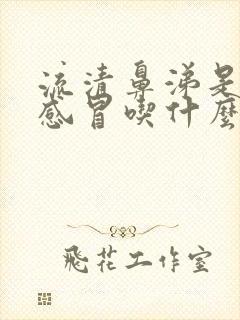 流清鼻涕是
感冒喫什麼
飛花工作室